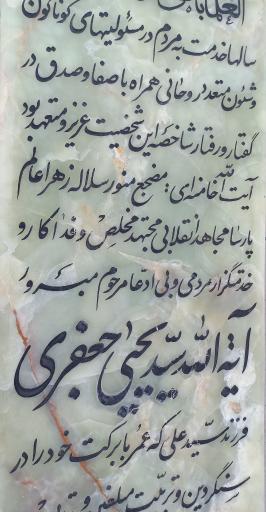 العلما
سالها خدمت به مردم در مسئولیتهای گوناگون
و شئون متعدد روحانی همراه با صفا و صدق در
گفتار و رفتار شاخصه این شخصیت عزیز و متعهد بود
آیت الله خامنه ای: مضجع منور سلاله زهرا عالم
پارسا مجاهد انقلابی مجتهد مخلص و فداکار و
خدمتگزار مردمی و بی ادعا مرحوم مبرور
آیة الله سید یحیی جعفری
فرزند سید علی که عمر با برکت خود را در
سنگر دین و تربیت مبلغین و